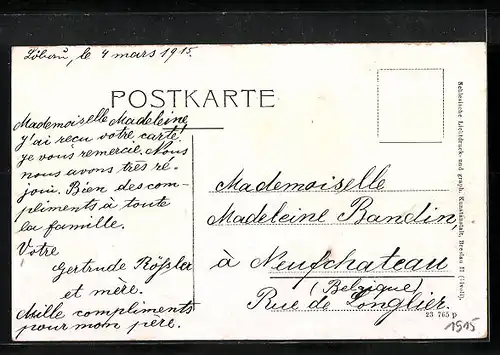 Löbau, le 4 mars 1915.
POSTKARTE
Mademoiselle Madeleine,
J'ai reçu votre carte!
Je vous remercie. Nous
nous avons très ré-
joui. Bien des com-
pliments à toute
la famille.
Votre
Gertrude Rößler
et mère.
Mille compliments
pour mon père.
Mademoiselle
Madeleine Bandin,
à Neufchateau
(Belgique)
Rue de Longlier.
23 765 p
1915
Schlesische Lichtdruck- und graph. Kunstanstalt, Breslau